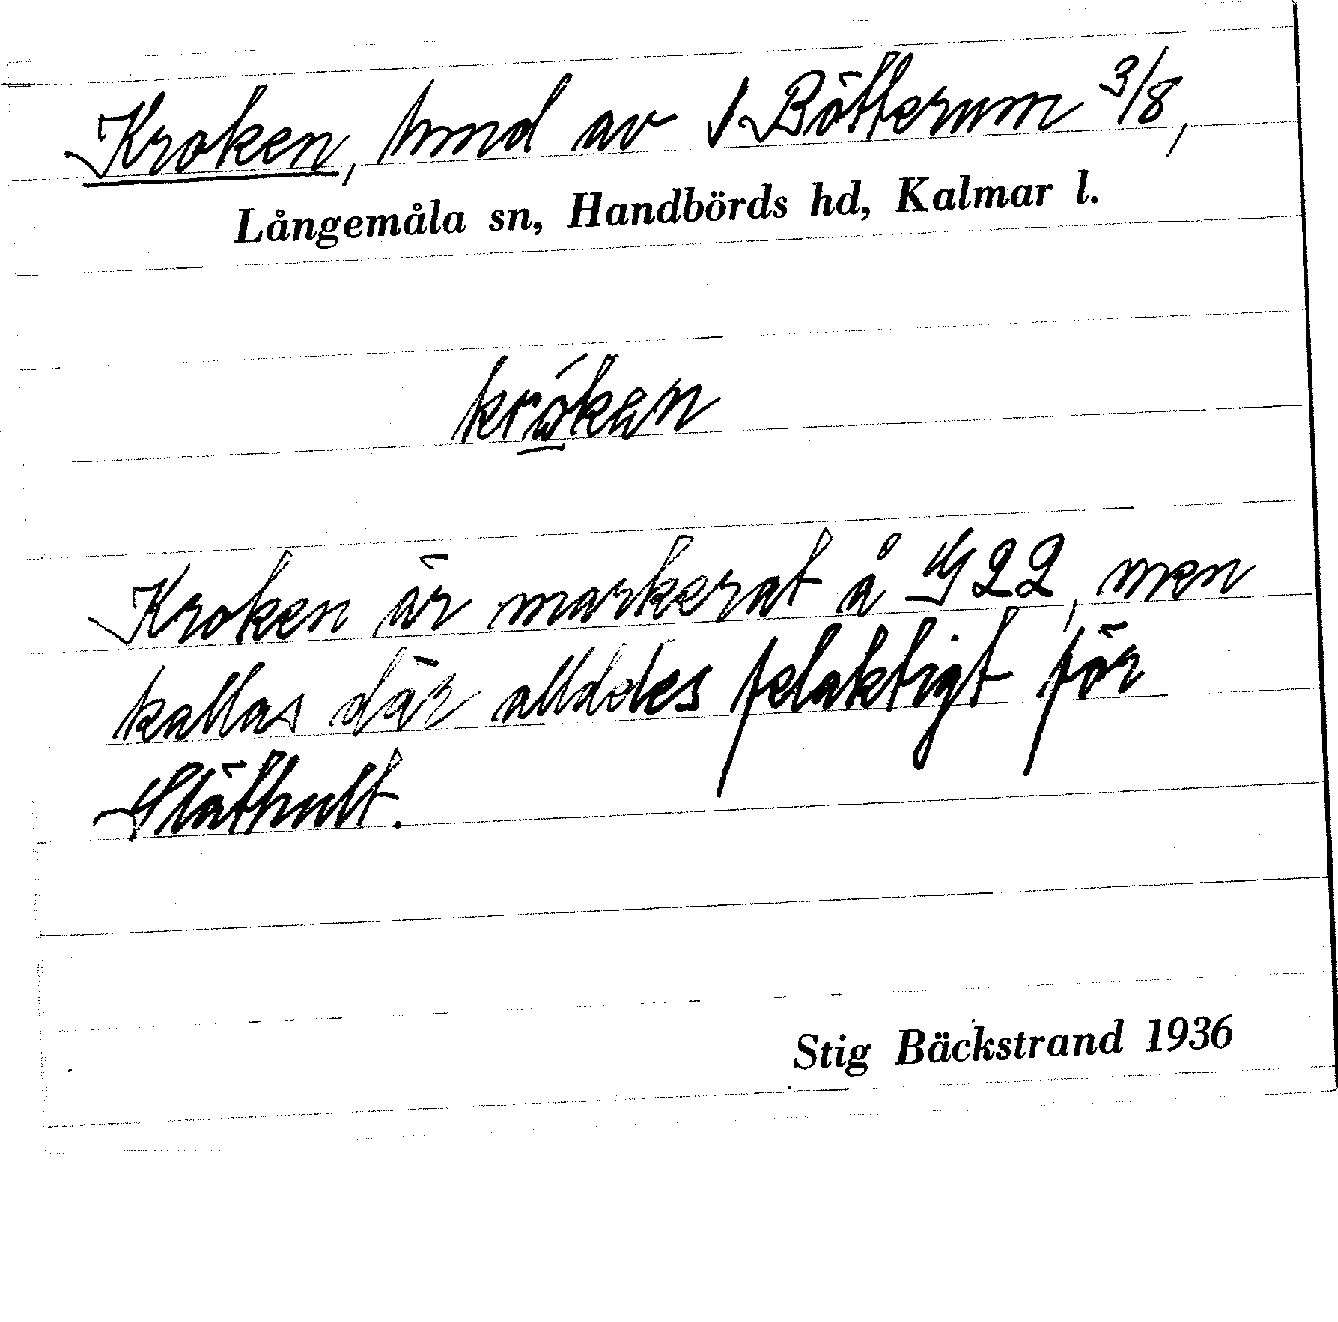 Kroken, hmd av /Bötterum 3/8,
Långemåla sn, Handbörds hd, Kalmar l.
krókan
Kroken är markerat å G22, men
kallas där alldeles felaktigt för
Släthult.
Stig Bäckstrand 1936